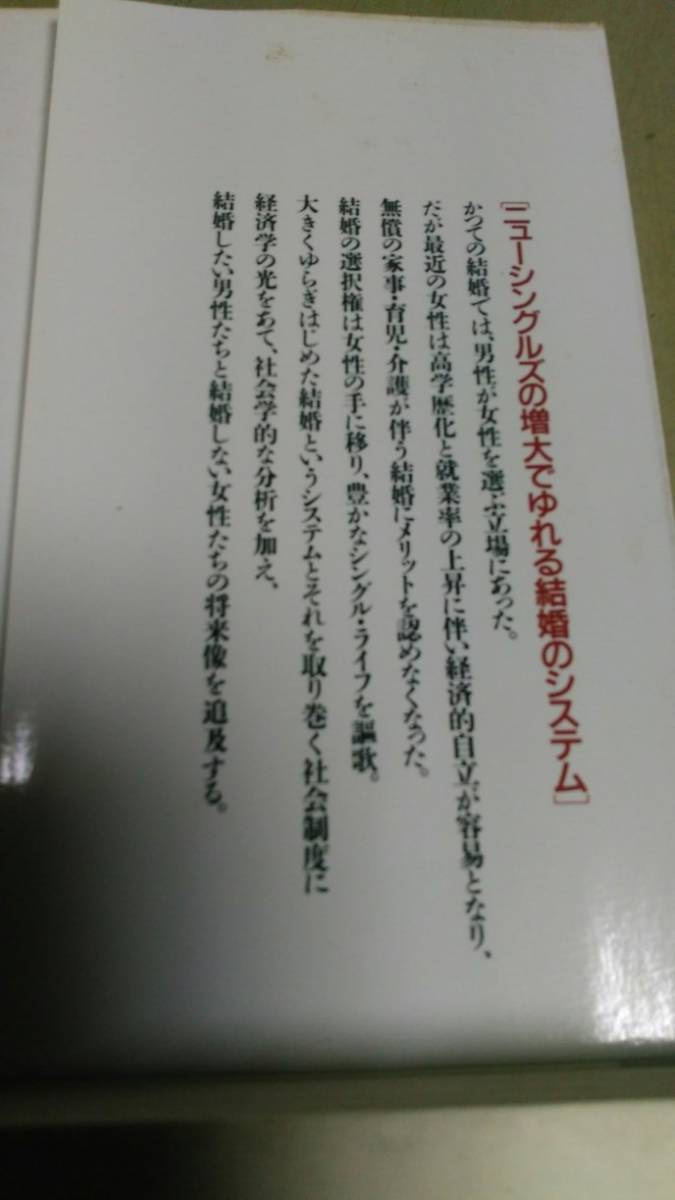 ［ニューシングルズの増大でゆれる結婚のシステム］
かつての結婚では、男性が女性を選ぶ立場にあった。
だが最近の女性は高学歴化と就業率の上昇に伴い経済的自立が容易となり、
無償の家事・育児・介護が伴う結婚にメリットを認めなくなった。
結婚の選択権は女性の手に移り、豊かなシングル・ライフを謳歌。
大きくゆらぎはじめた結婚というシステムとそれを取り巻く社会制度に
経済学の光をあて、社会学的な分析を加え、
結婚したい男性たちと結婚しない女性たちの将来像を追及する。